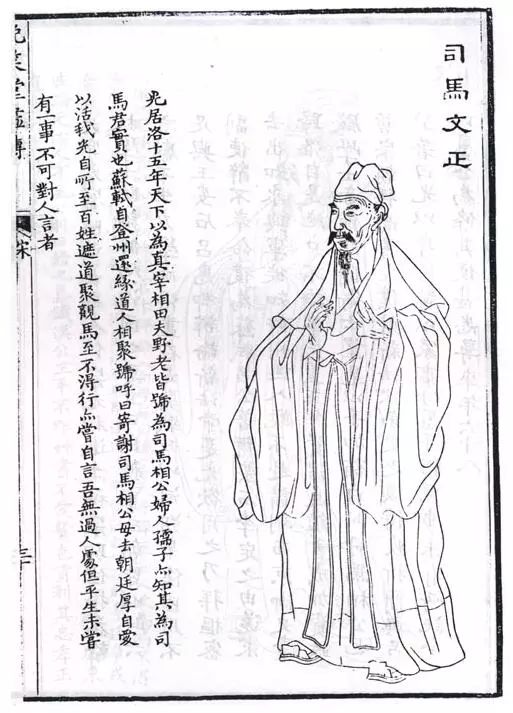 司馬文正
光居洛十五年天下以為真宰相田夫野老皆號為司馬相公婦人孺子亦知其為司
馬君實也蘇軾自登州還緣道人相聚號呼曰寄謝司馬相公母去朝廷厚自愛
以活我光自所至百姓遮道聚觀馬至不得行亦嘗自言吾無過人處但平生未嘗
有一事不可對人言者
晚笑堂畫傳